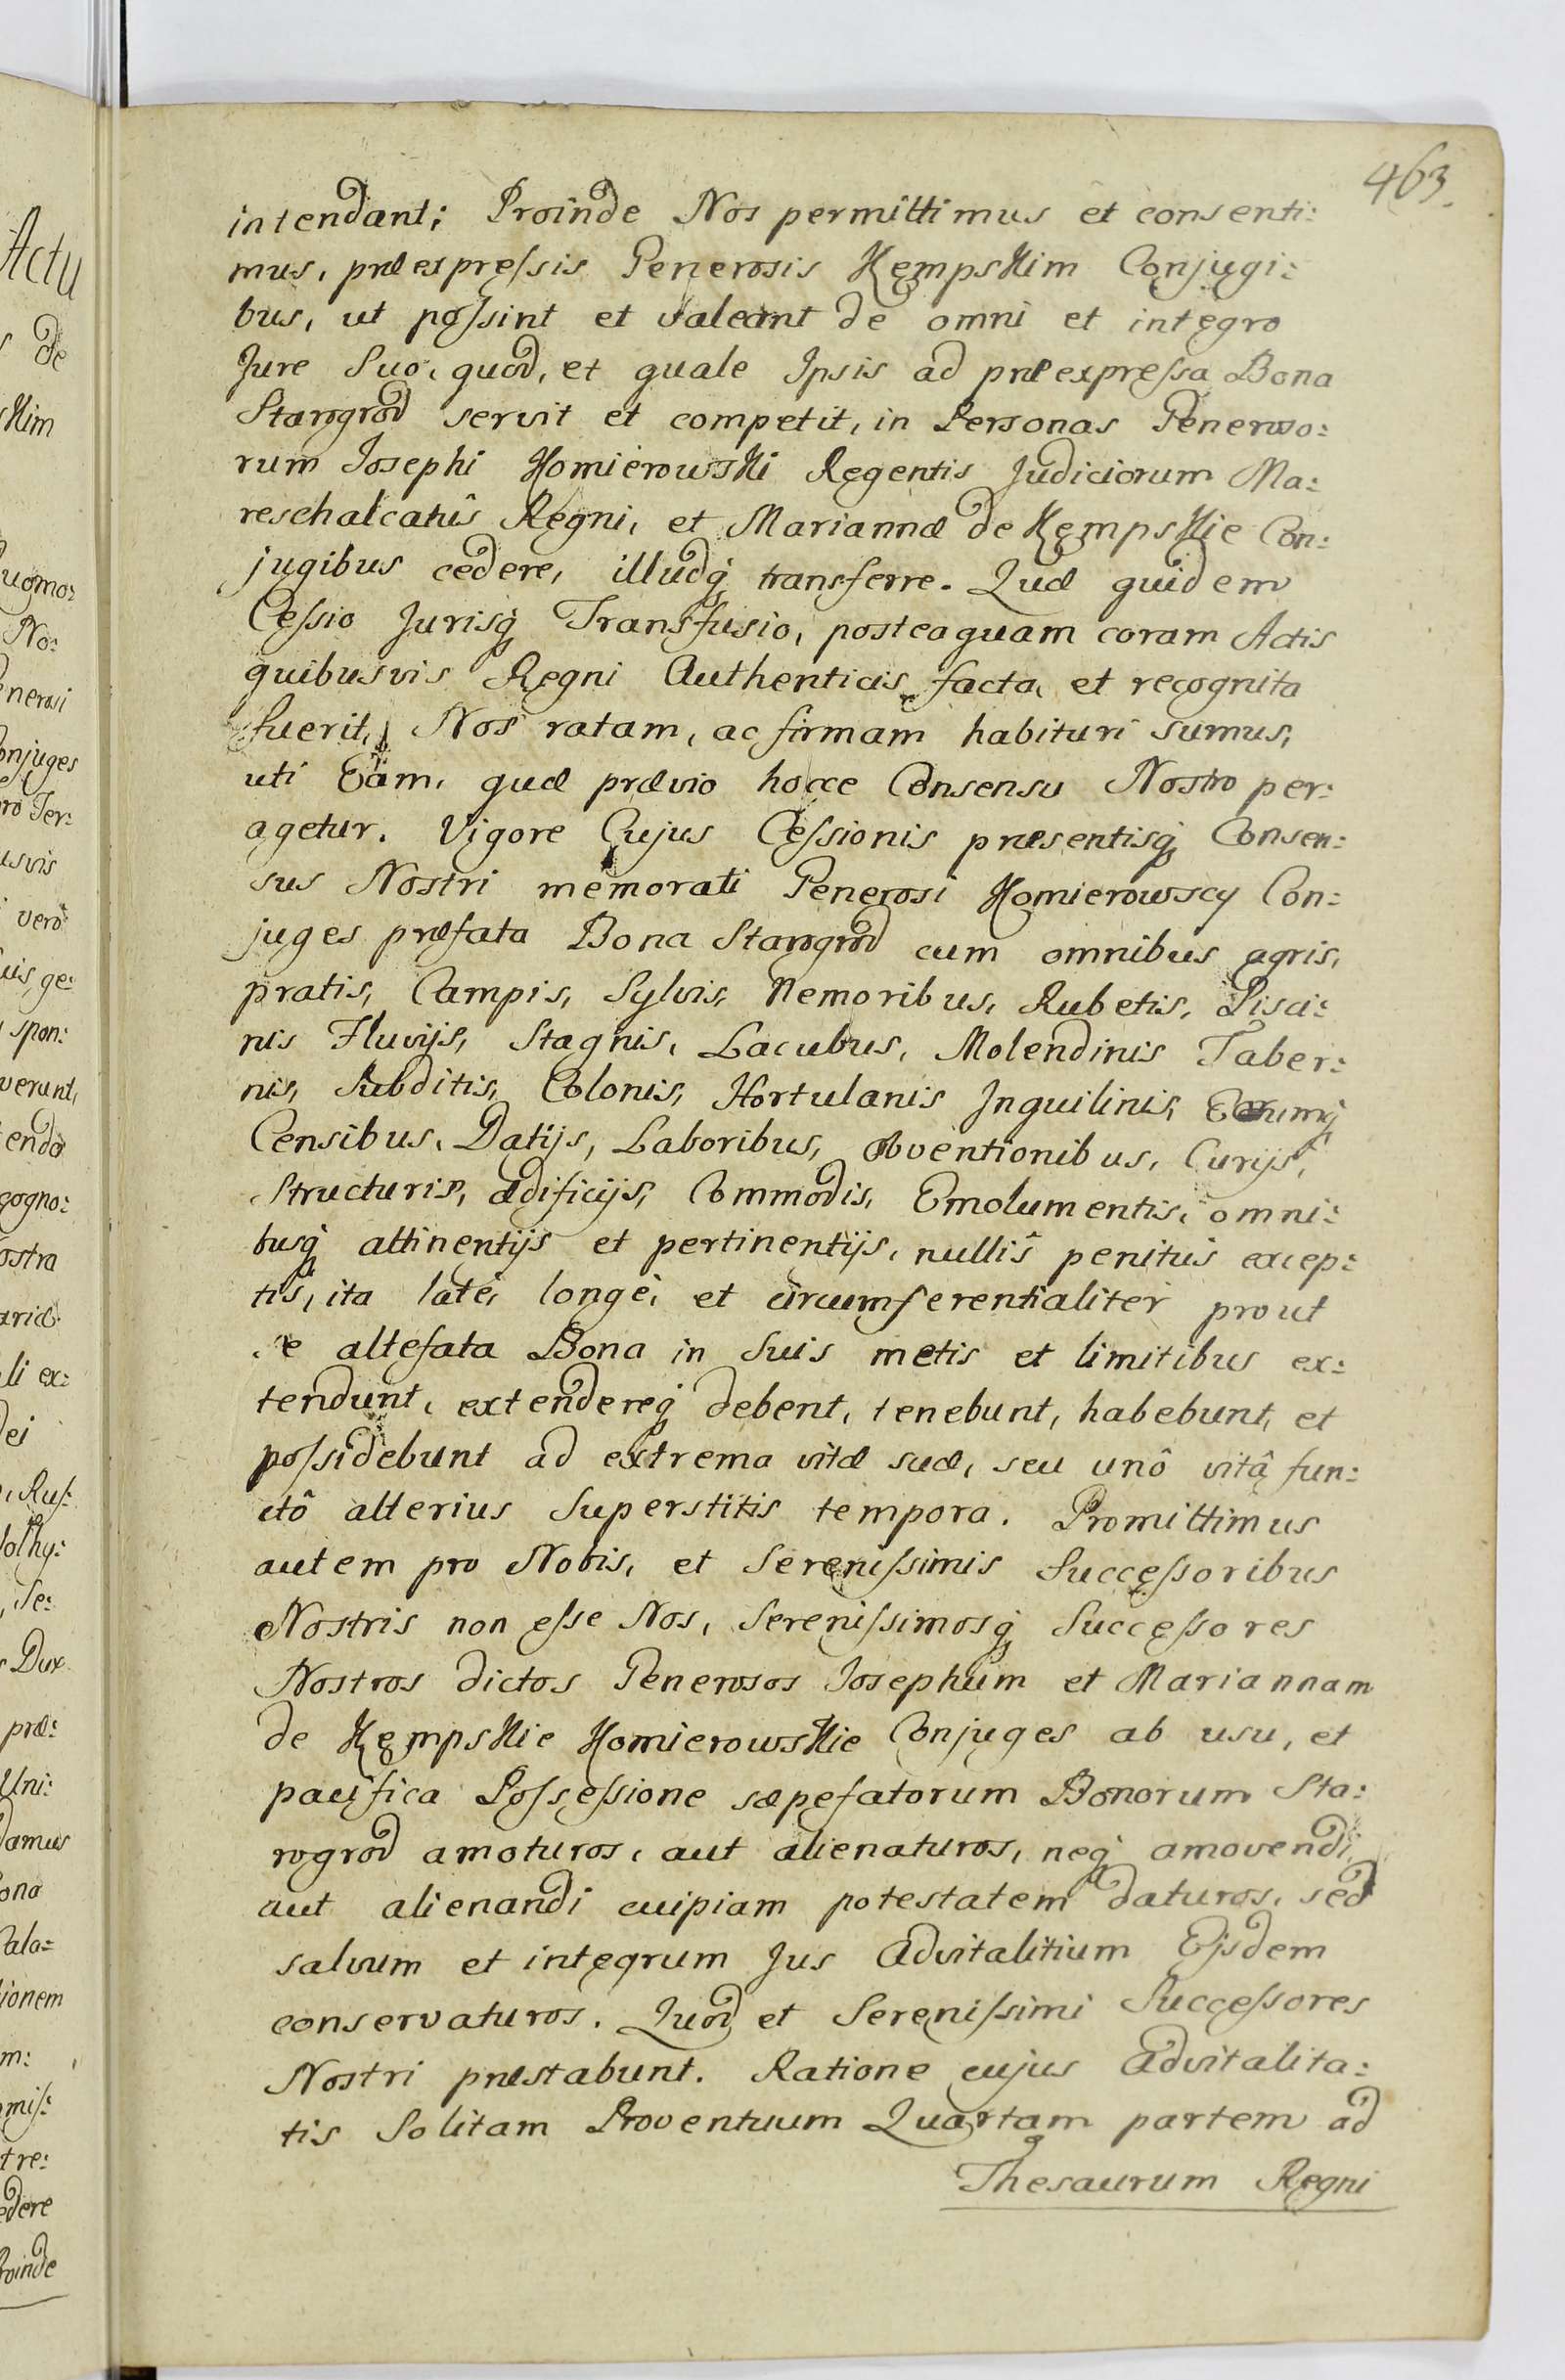 463.
intendant; Proinde Nos permittimus et consenti:
mus, præespreſsis Generosis Kępskim Conjugi:
bus, ut poſsint et valeant de omni et integro
Jure Suo, quod, et quale Ipsis ad præexpreſsa Bona
Starogrod servit et competit, in Personas Generoso:
rum Josephi Komierowski Regentis Judiciorum Ma:
reschalcatûs Regni, et Mariannæ de Kempskie Con:
jugibus cedere, illudq́ transferre. Quæ quidem
Ceſsio Jurisq́ Transfusio, posteaquam coram Actis
quibusvis Regni Authenticis facta, et recognita
fuerit, Nos ratam, ac firmam habituri sumus,
uti Eam, quæ prævio hocce Consensu Nostro per:
agetur. Vigore Cujus Ceſsionis præsentisq́ Consen:
sus Nostri memorati Generosi Komierowscy Con:
juges præfata Bona Starogrod cum omnibus agris,
pratis, Campis, Sylvis, Nemoribus, Rubetis, Pisci:
nis Fluvijs, Stagnis, Lacubus, Molendinis Taber:
nis, Subditis, Colonis, Hortulanis Inquilinis, Eorumq́
Censibus, Datijs, Laboribus, obventionibus, Curijs,
Structuris, ædificijs, Commodis, Emolumentis, omni:
busq́ attinentijs et pertinentijs, nullis penitus excep:
tis, ita latè, longè, et circumferentialiter prout
se altefata Bona in Suis metis et limitibus ex:
tendunt, extendereq́ debent, tenebunt, habebunt, et
poſsidebunt ad extrema vitæ suæ, seu unô vitâ fun:
ctô alterius Superstitis tempora. Promittimus
autem pro Nobis, et Sereniſsimis Succeſsoribus
Nostris non eſse Nos, Sereniſsimosq́ Succeſsores
Nostros dictos Generosos Josephum et Mariannam
de Kempskie Komierowskie Conjuges ab usu, et
pacifica Poſseſsione sæpefatorum Bonorum Sta:
rogrod amoturos, aut alienaturos, neq́ amovendi,
aut alienandi cuipiam potestatem daturos, sed
salvum et integrum Jus Advitalitium Ejsdem
conservaturos. Quod et Sereniſsimi Succeſsores
Nostri præstabunt. Ratione cujus Advitalita:
tis Solitam Proventuum Quartam partem ad
Thesaurum Regni
Actu
de
skim
No:
nerosi
onjuges
ro Ter:
usvis
vero
uis, ge:
spon:
verunt,
cogno:
ostra
li ex:
dei
, Ruſ:
, Se:
Dux
præ:
Uni:
damus
ona
Pala:
ionem
m:
miſ:
tre:
edere
Proinde